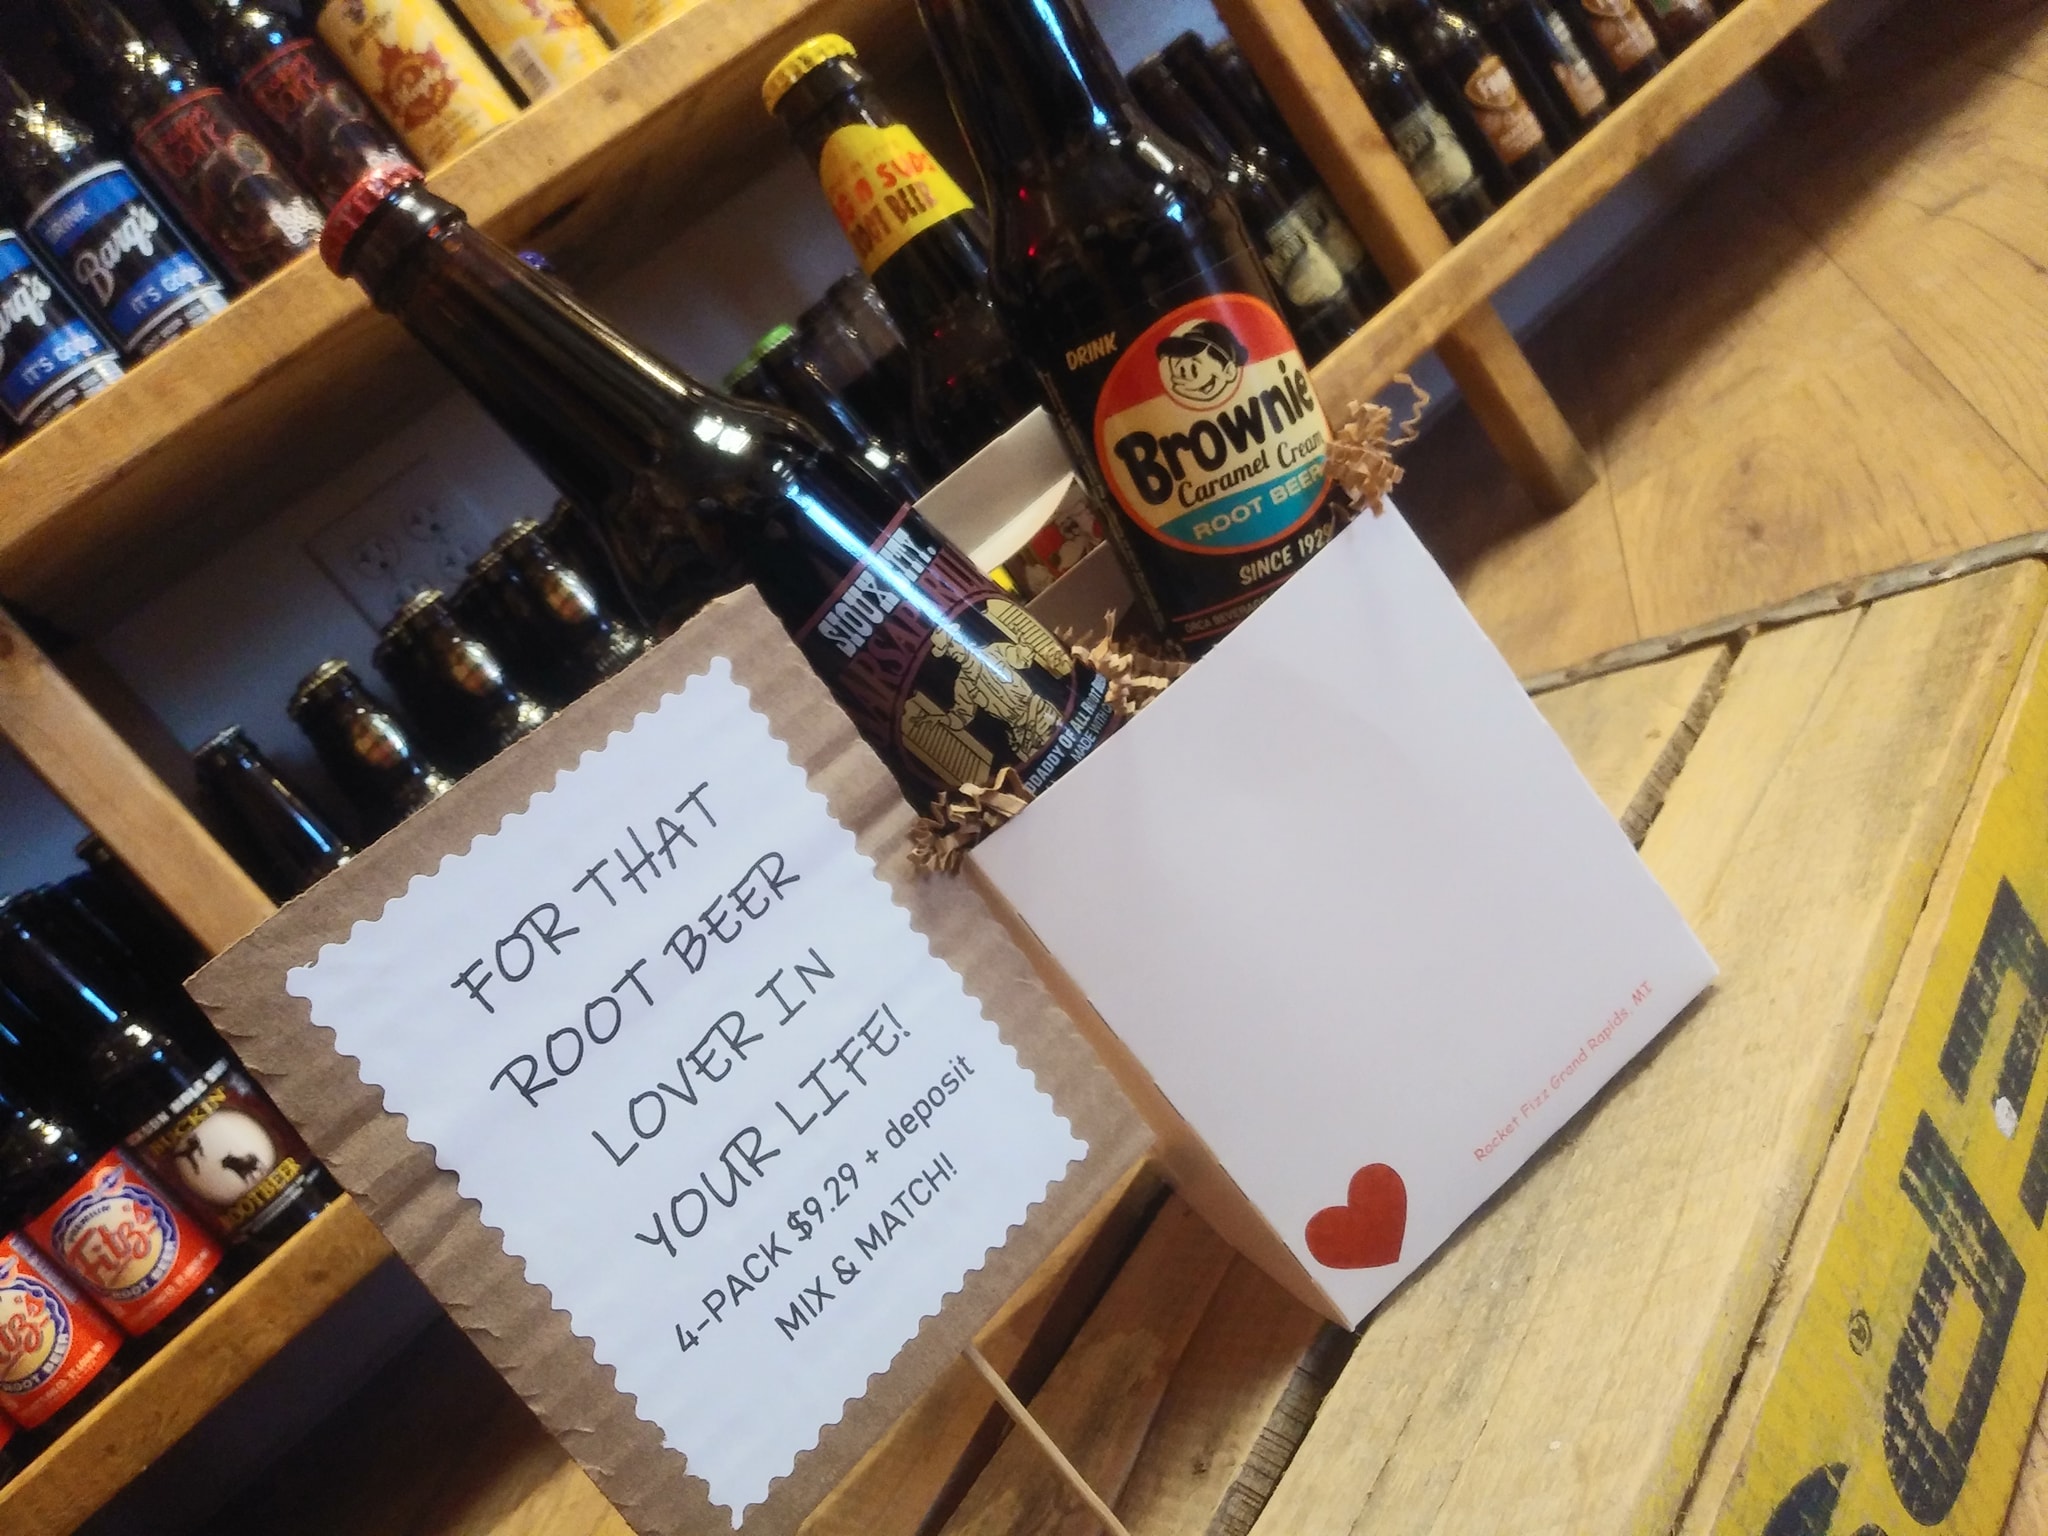 FOR THAT
ROOT BEER
LOVER IN
YOUR LIFE!
4-PACK $9.29 + deposit
MIX & MATCH!
Rocket Fizz Grand Rapids, MI
DRINK
Brownie
Caramel Cream
ROOT BEER
SINCE 1929
SIOUX CITY
SARSAPARILLA
DADDY OF ALL ROOT
MADE WITH
SUDS
ROOT BEER
DRINK
Barq's
IT'S GOOD
IT'S GOOD
Fitz's
ROOT BEER
ROOT BEER
BUCKIN'
ROOT BEER